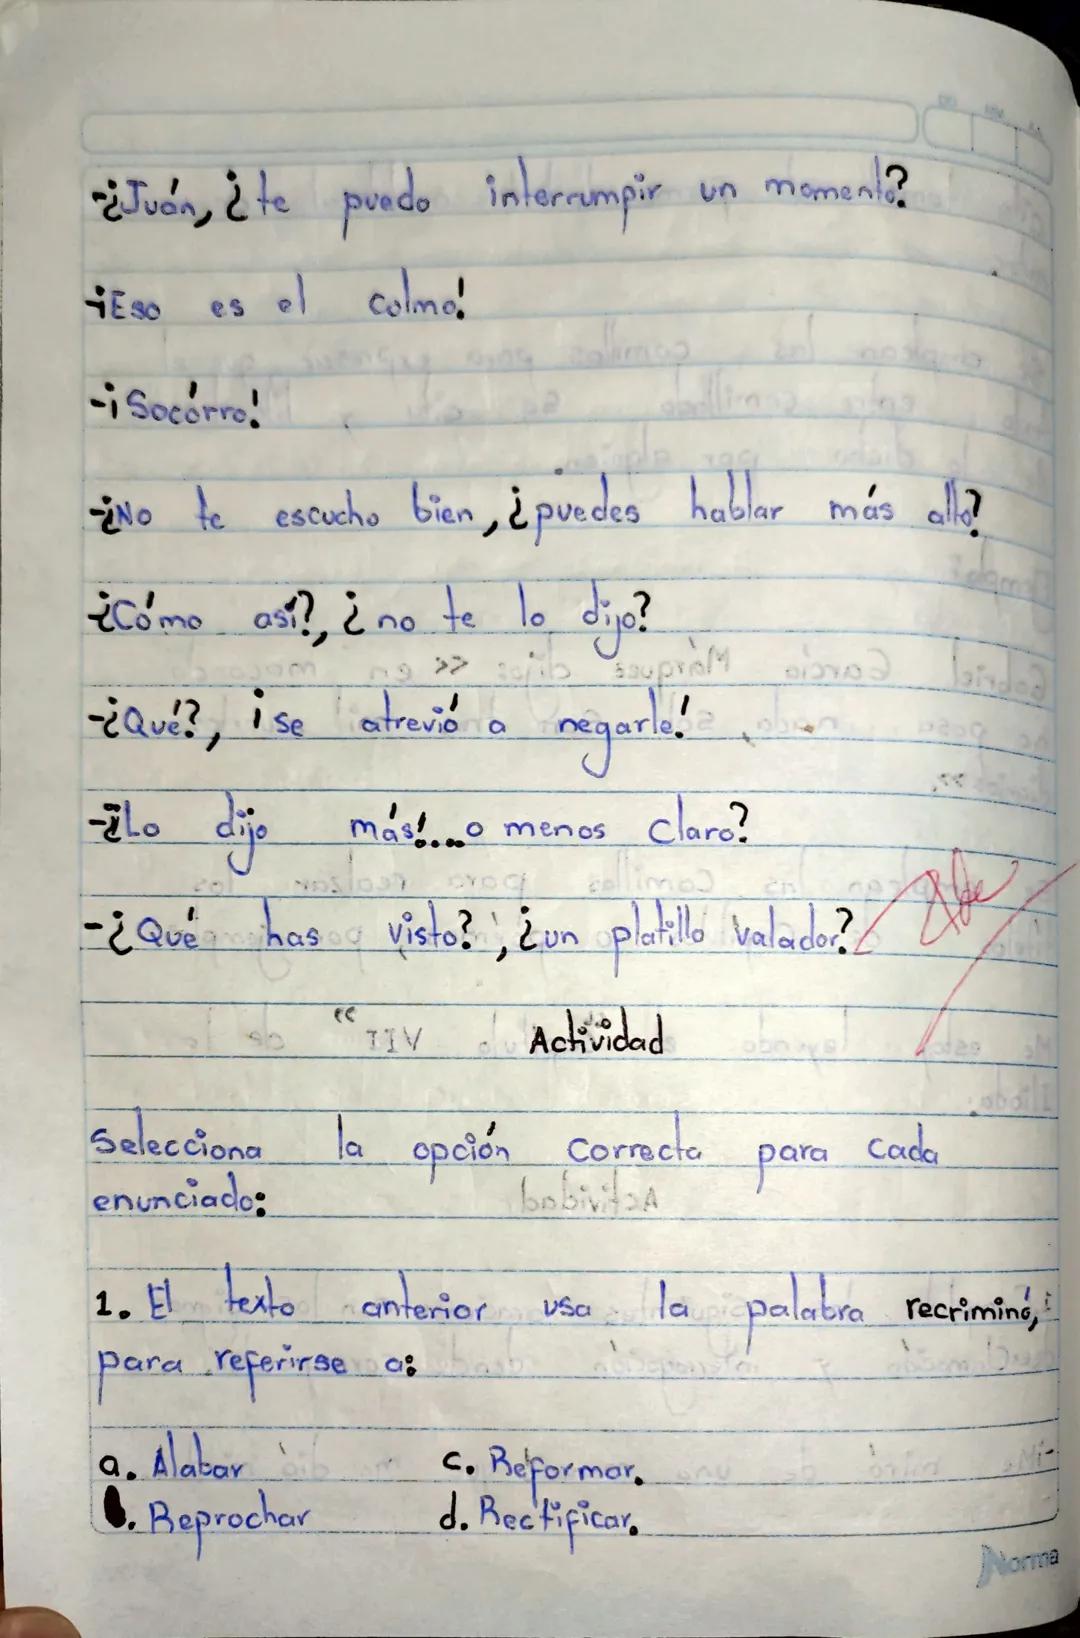 -¿Juán, ¿te puedo interrumpir un momento?
-¡Eso es el colmo!
-¡Socórro!
-¿No te escucho bien, ¿puedes hablar más alto?
-¿Cómo así?, ¿no te lo dijo?
-¿Qué?, ¡se atrevió a negarle!
-¿Lo dijo más!...o menos claro?
-¿Qué has visto?, ¿un platillo valador?
Actividad
Selecciona la opción correcta para cada
enunciado:
1. El texto anterior usa la palabra recriminó,
para referirse a:
a. Alabar c. Reformar.
b. Reprochar d. Rectificar.
Norma